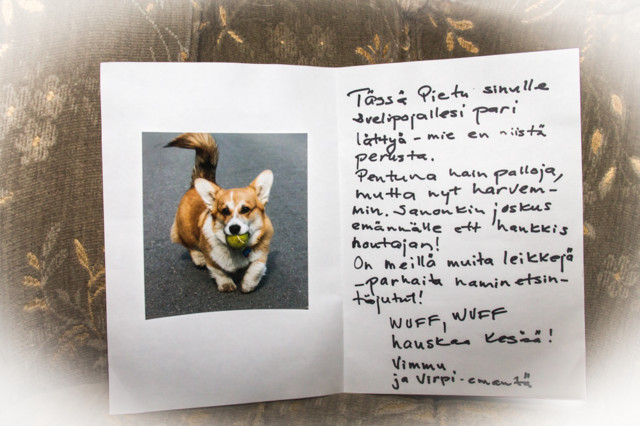 Tässä Pietu sinulle
svelipojallesi pari
lättyä - mie en niistä
perusta.
Pentuna hain palloja,
mutta nyt harvem-
min. Sanonkin joskus
emännälle ett hankkis
noutajan!
On meillä muita leikkejä
- parhaita namin etsin-
töjutut!
WUFF, WUFF
hauskaa kesää!
Vimmu
ja Virpi-emäntä